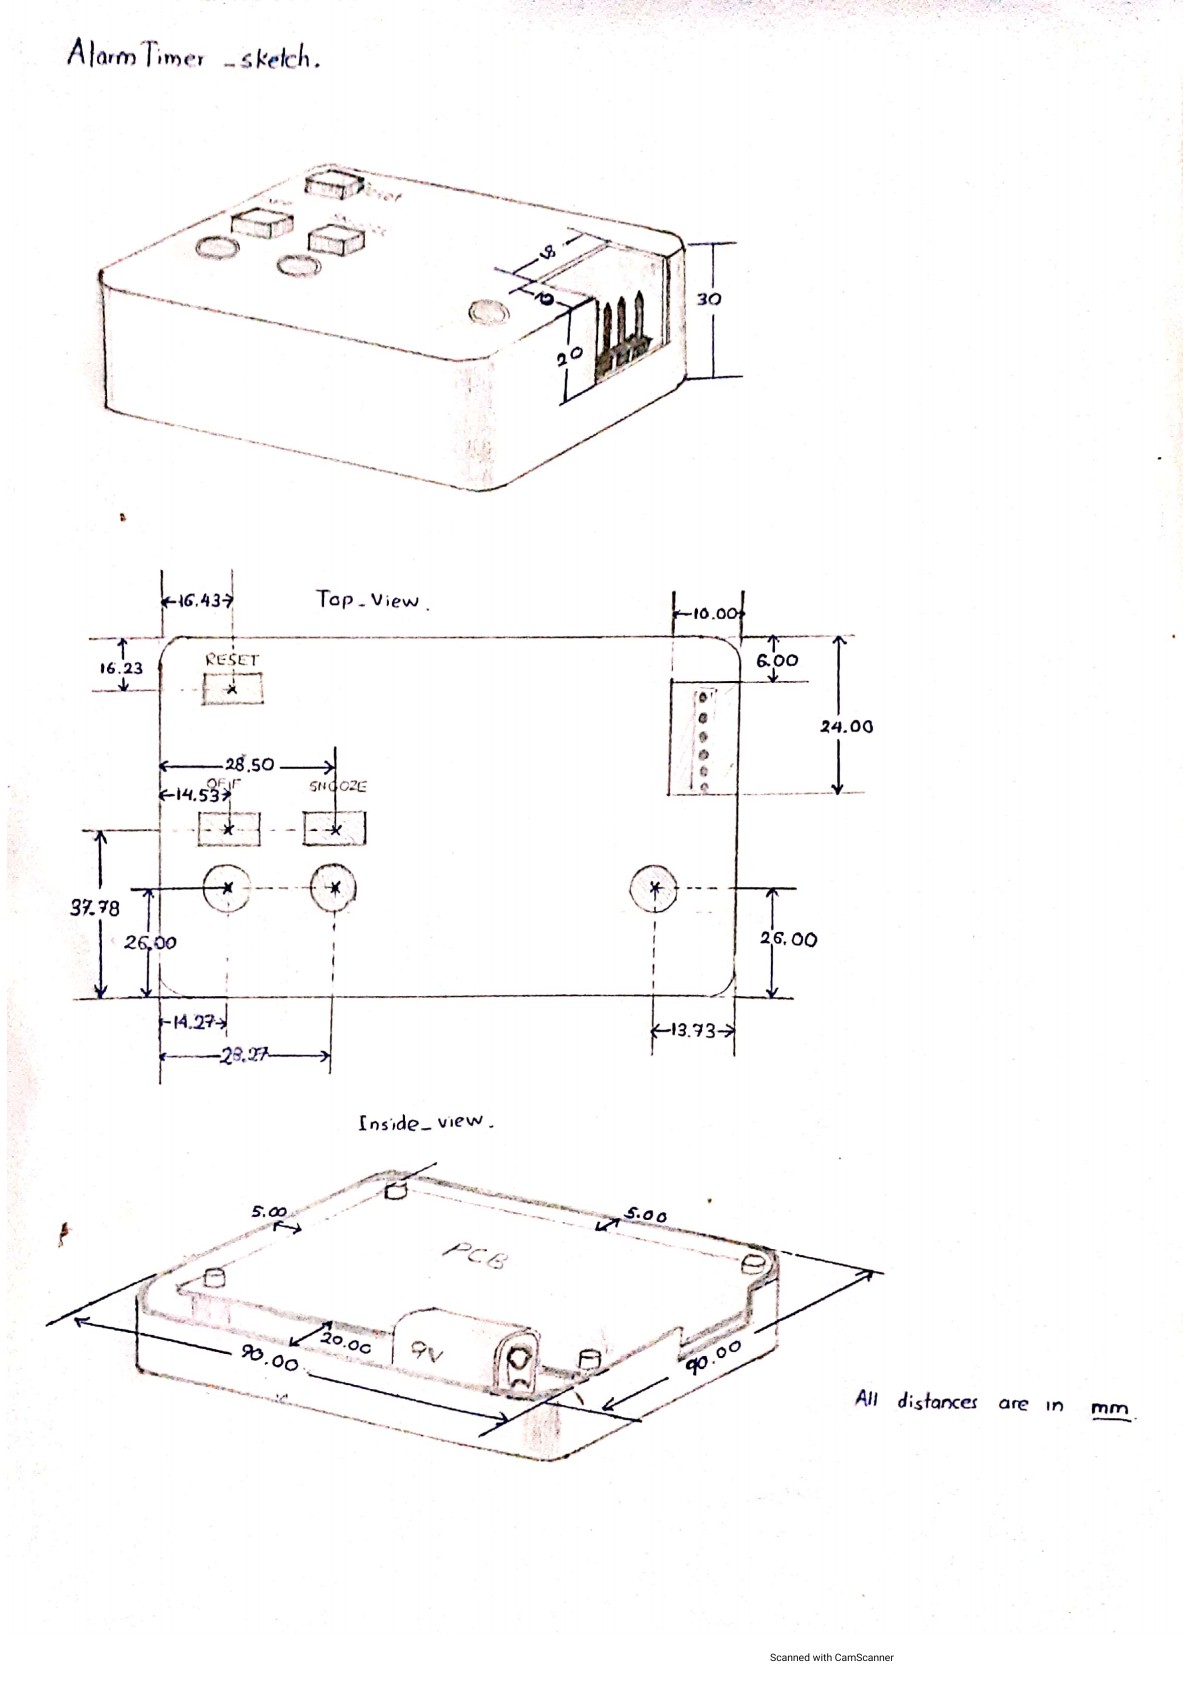 Alarm Timer - sketch.
18
10
20
30
16.43
Top - View.
10.00
16.23
RESET
6.00
24.00
28.50
14.53
SNOOZE
37.78
26.00
26.00
14.27
28.27
13.73
Inside - view.
5.00
5.00
PCB
20.00
9V
90.00
90.00
All distances are in mm.
Scanned with CamScanner